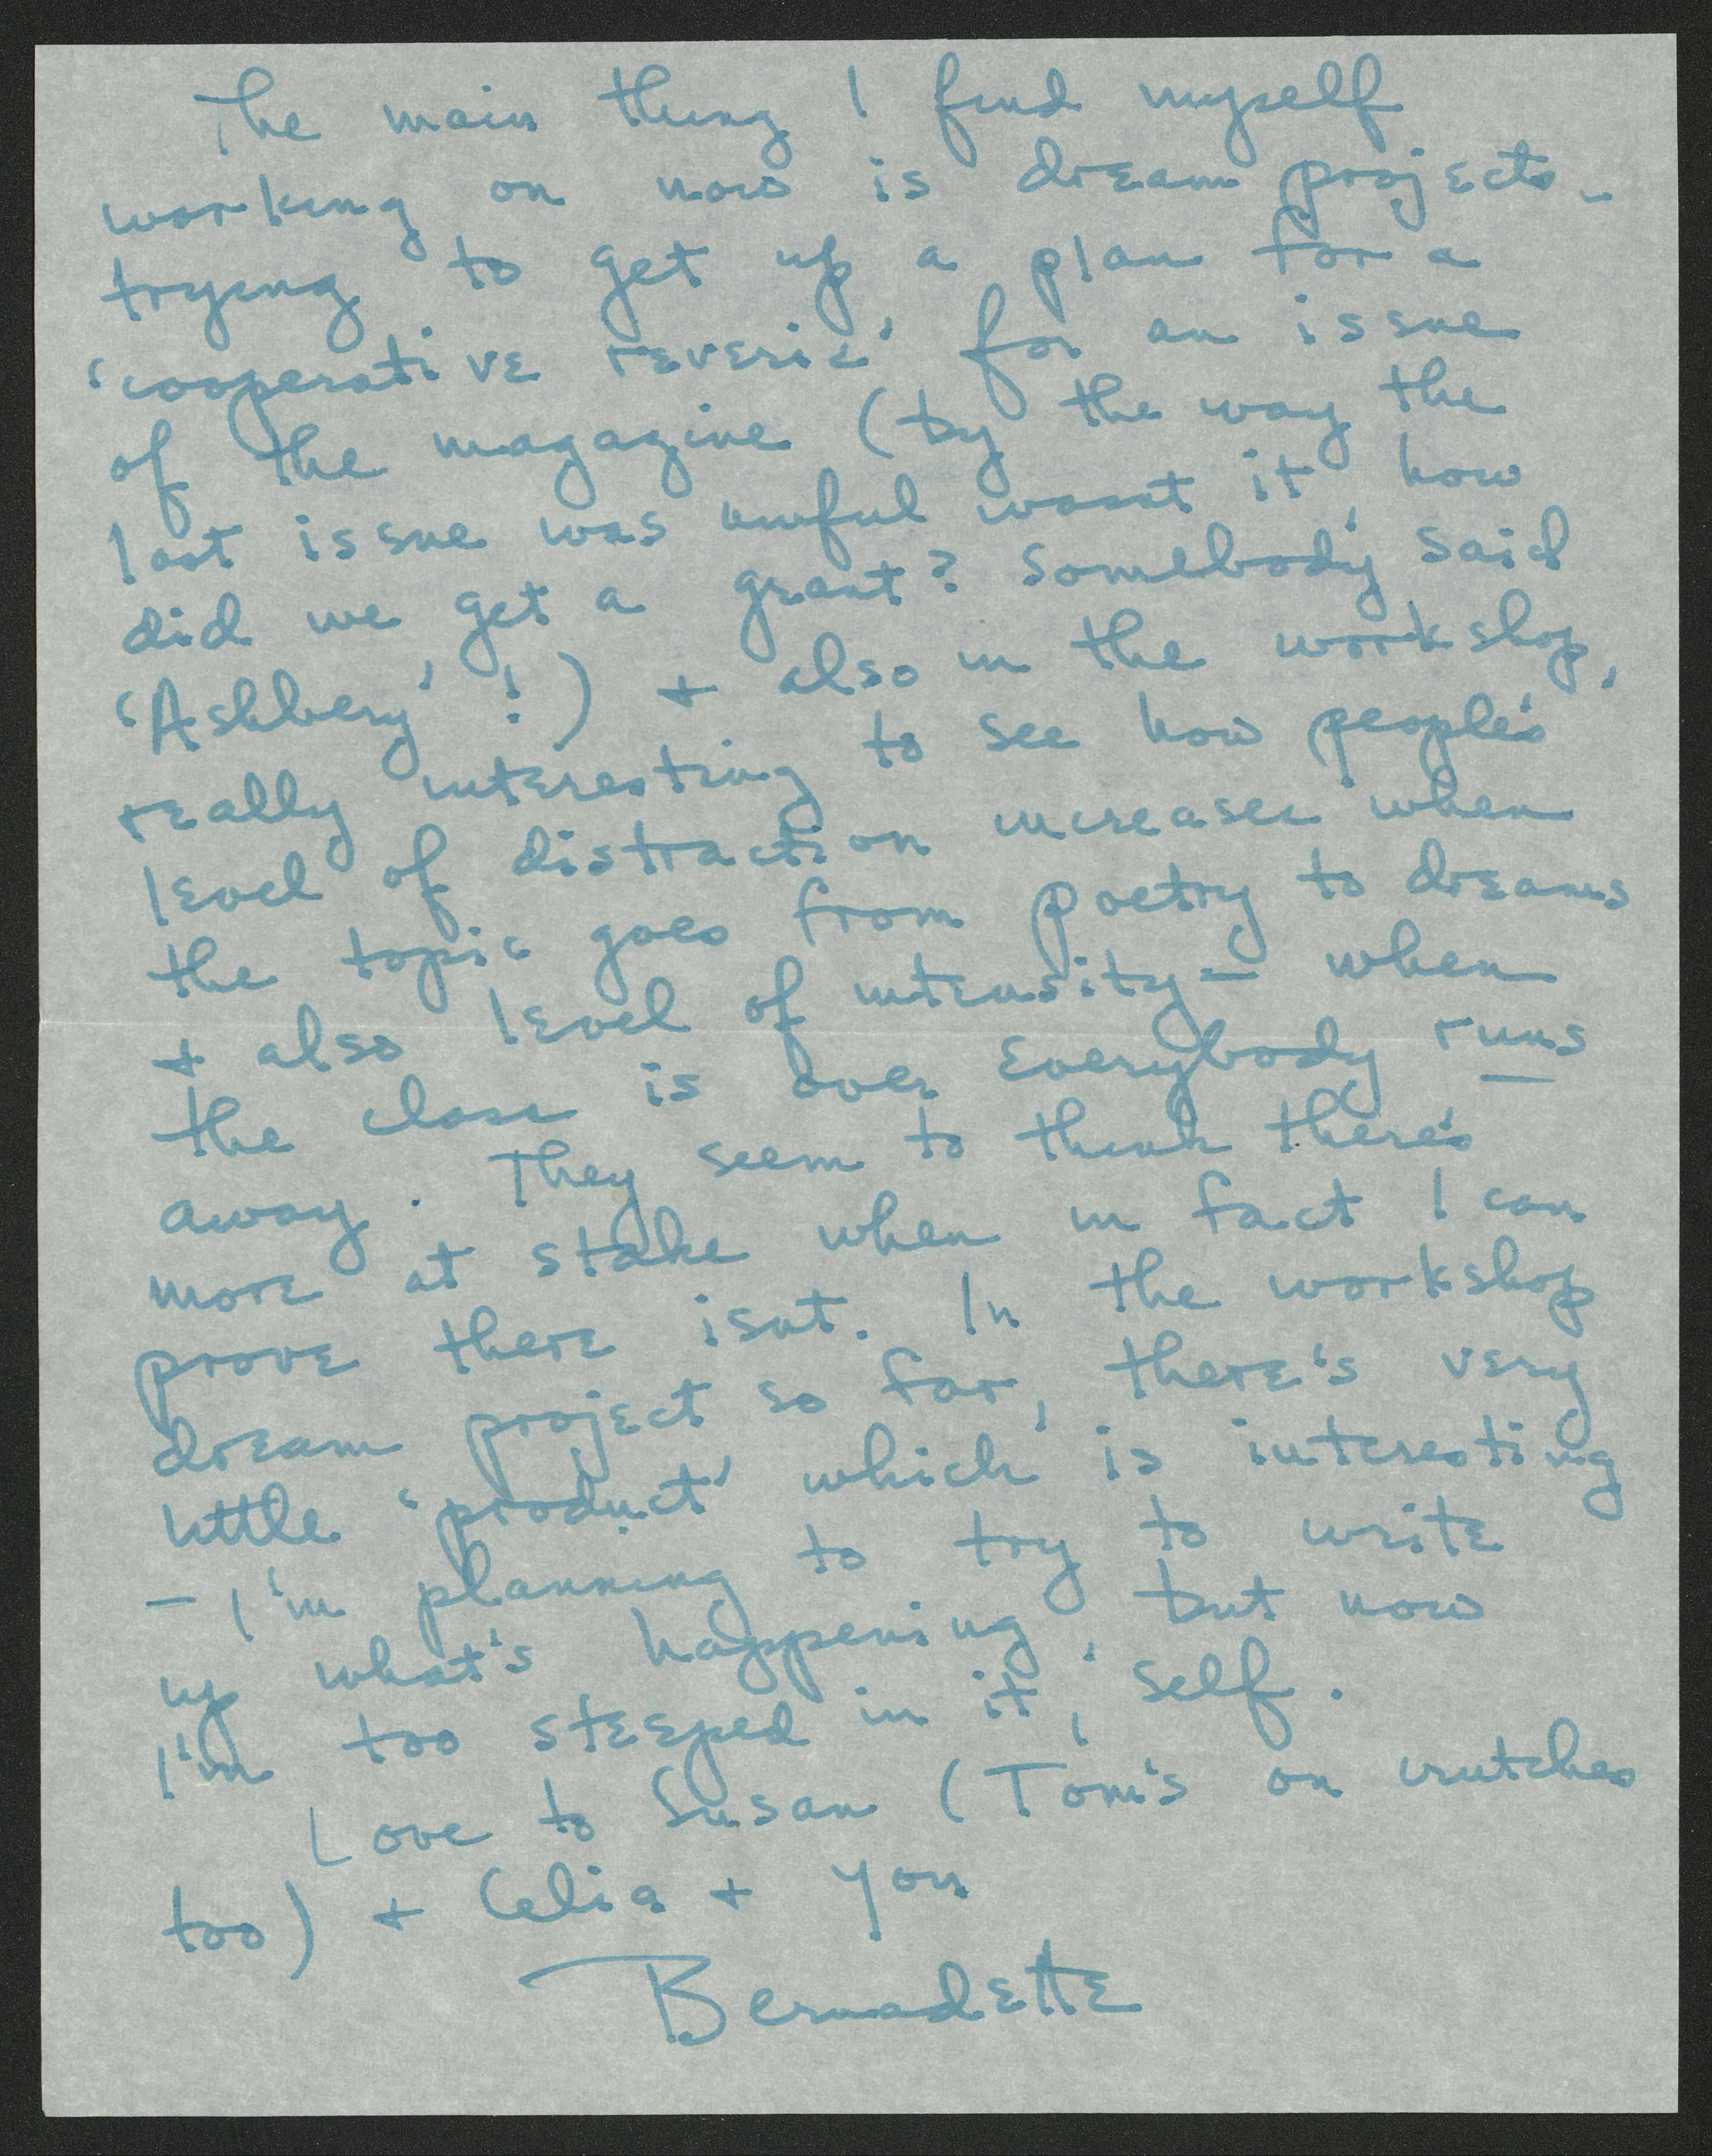 The main thing I find myself
working on now is dream projects -
trying to get up a plan for a
'cooperative reverie' for an issue
of the magazine (by the way the
last issue was awful wasnt it, how
did we get a grant? Somebody said
'Ashbery'!) + also in the workshop,
really interesting to see how people's
level of distraction increases when
the topic goes from poetry to dreams
+ also level of intensity - when
the class is over everybody runs
away. They seem to think there's
more at stake when in fact I can
prove there isnt. In the workshop
dream project so far, there's very
little 'product' which is interesting
- I'm planning to try to write
up what's happening, but now
I'm too steeped in it, self.
Love to Susan (Tom's on crutches
too) + Celia + you
Bernadette